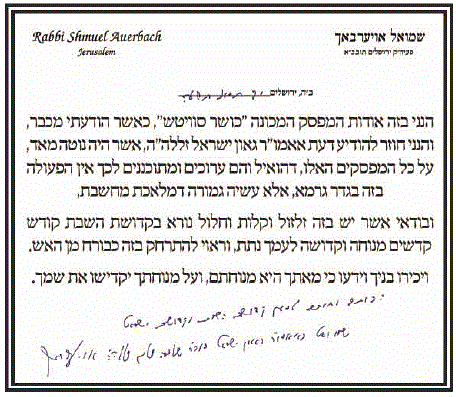 Rabbi Shmuel Auerbach
Jerusalem
שמואל אויערבאך
פעיה״ק ירושלים תובב״א
ב״ה, ירושלים
הנני בזה אודות המפסק המכונה "כושר סוויטש", כאשר הודעתי מכבר,
והנני חוזר להודיע דעת אאמו"ר גאון ישראל זללה"ה, אשר היה נוטה מאד,
על כל המפסקים האלו, דהואיל והם ערוכים ומתוכננים לכך אין הפעולה
בזה בגדר גרמא, אלא עשיה גמורה דמלאכת מחשבת.
ובודאי אשר יש בזה זלזול וקלות וחלול נורא בקדושת השבת קודש
קדשים מנוחה וקדושה לעמך נתת, וראוי להתרחק בזה כבורח מן האש.
ויכירו בניך וידעו כי מאתך היא מנוחתם, ועל מנוחתך יקדישו את שמך.